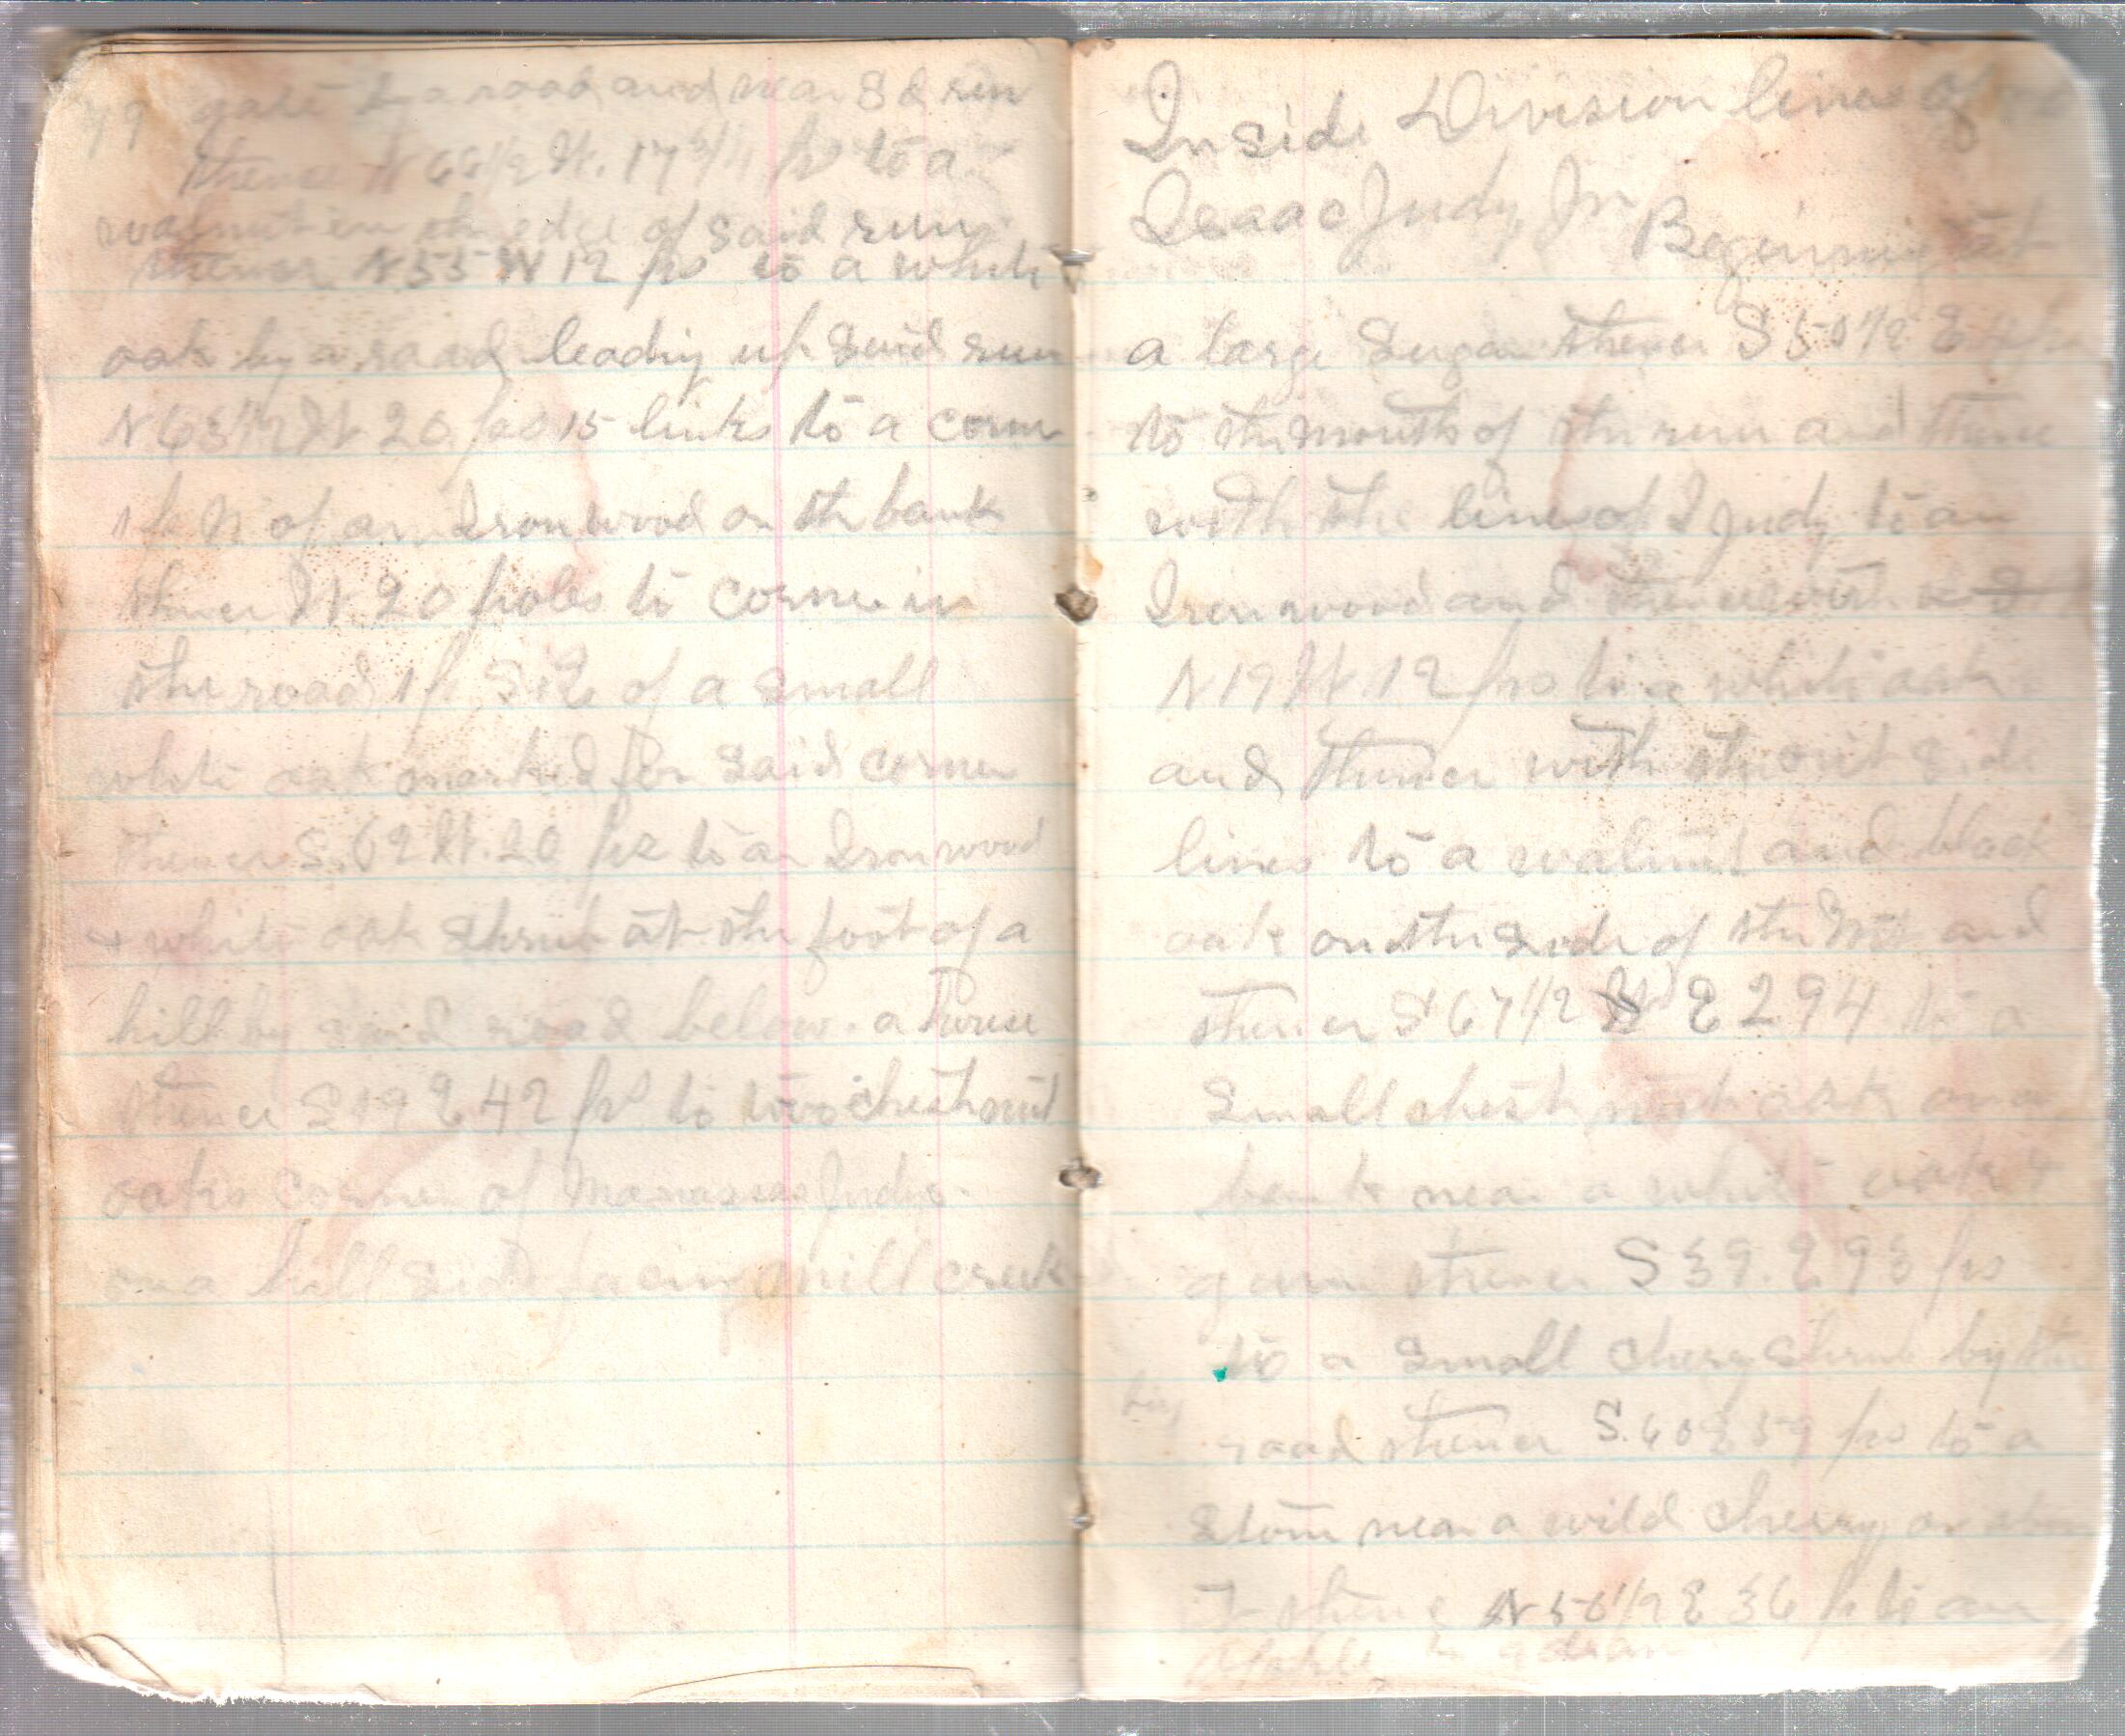 79 gate by a road and near Sd run
thence N 66 1/2 W. 17 3/4 ps to a
walnut on the edge of said run
thence N 55 W 12 ps to a white
oak by a road leading up said run
N 63 1/2 W 20 pos 15 links to a corner
1 p N of an Ironwood on the bank
thence W 20 poles to corner in
the road 1 p of a small
white oak marked for said corner
thence S. 62 W. 20 pos to an Ironwood
+ white oak shrub at the foot of a
hill by said road below a house
thence S 19 E 42 ps to two chestnut
oaks corner of Manasseas Judys
on a hill side facing mill creek
Inside Division lines of
Isaac Judy, Jr Beginning at
a large Sugar thence S 50 1/2 E
to the mouth of the run and thence
with the lines of I Judy to an
Ironwood and
N 19 W. 12 pos to a white oak
and thence with the out side
lines to a walnut and black
oak on the side of the Mt and
thence S 67 1/2 E 294 to a
small chestnut oak on a
bank near a white oak &
gum thence S 39. E 93 pos
to a small chery shrub by the
road thence S. 60 E 59 pos to a
stone near a wild cherry
thence N 56 1/2 E 36 p to an